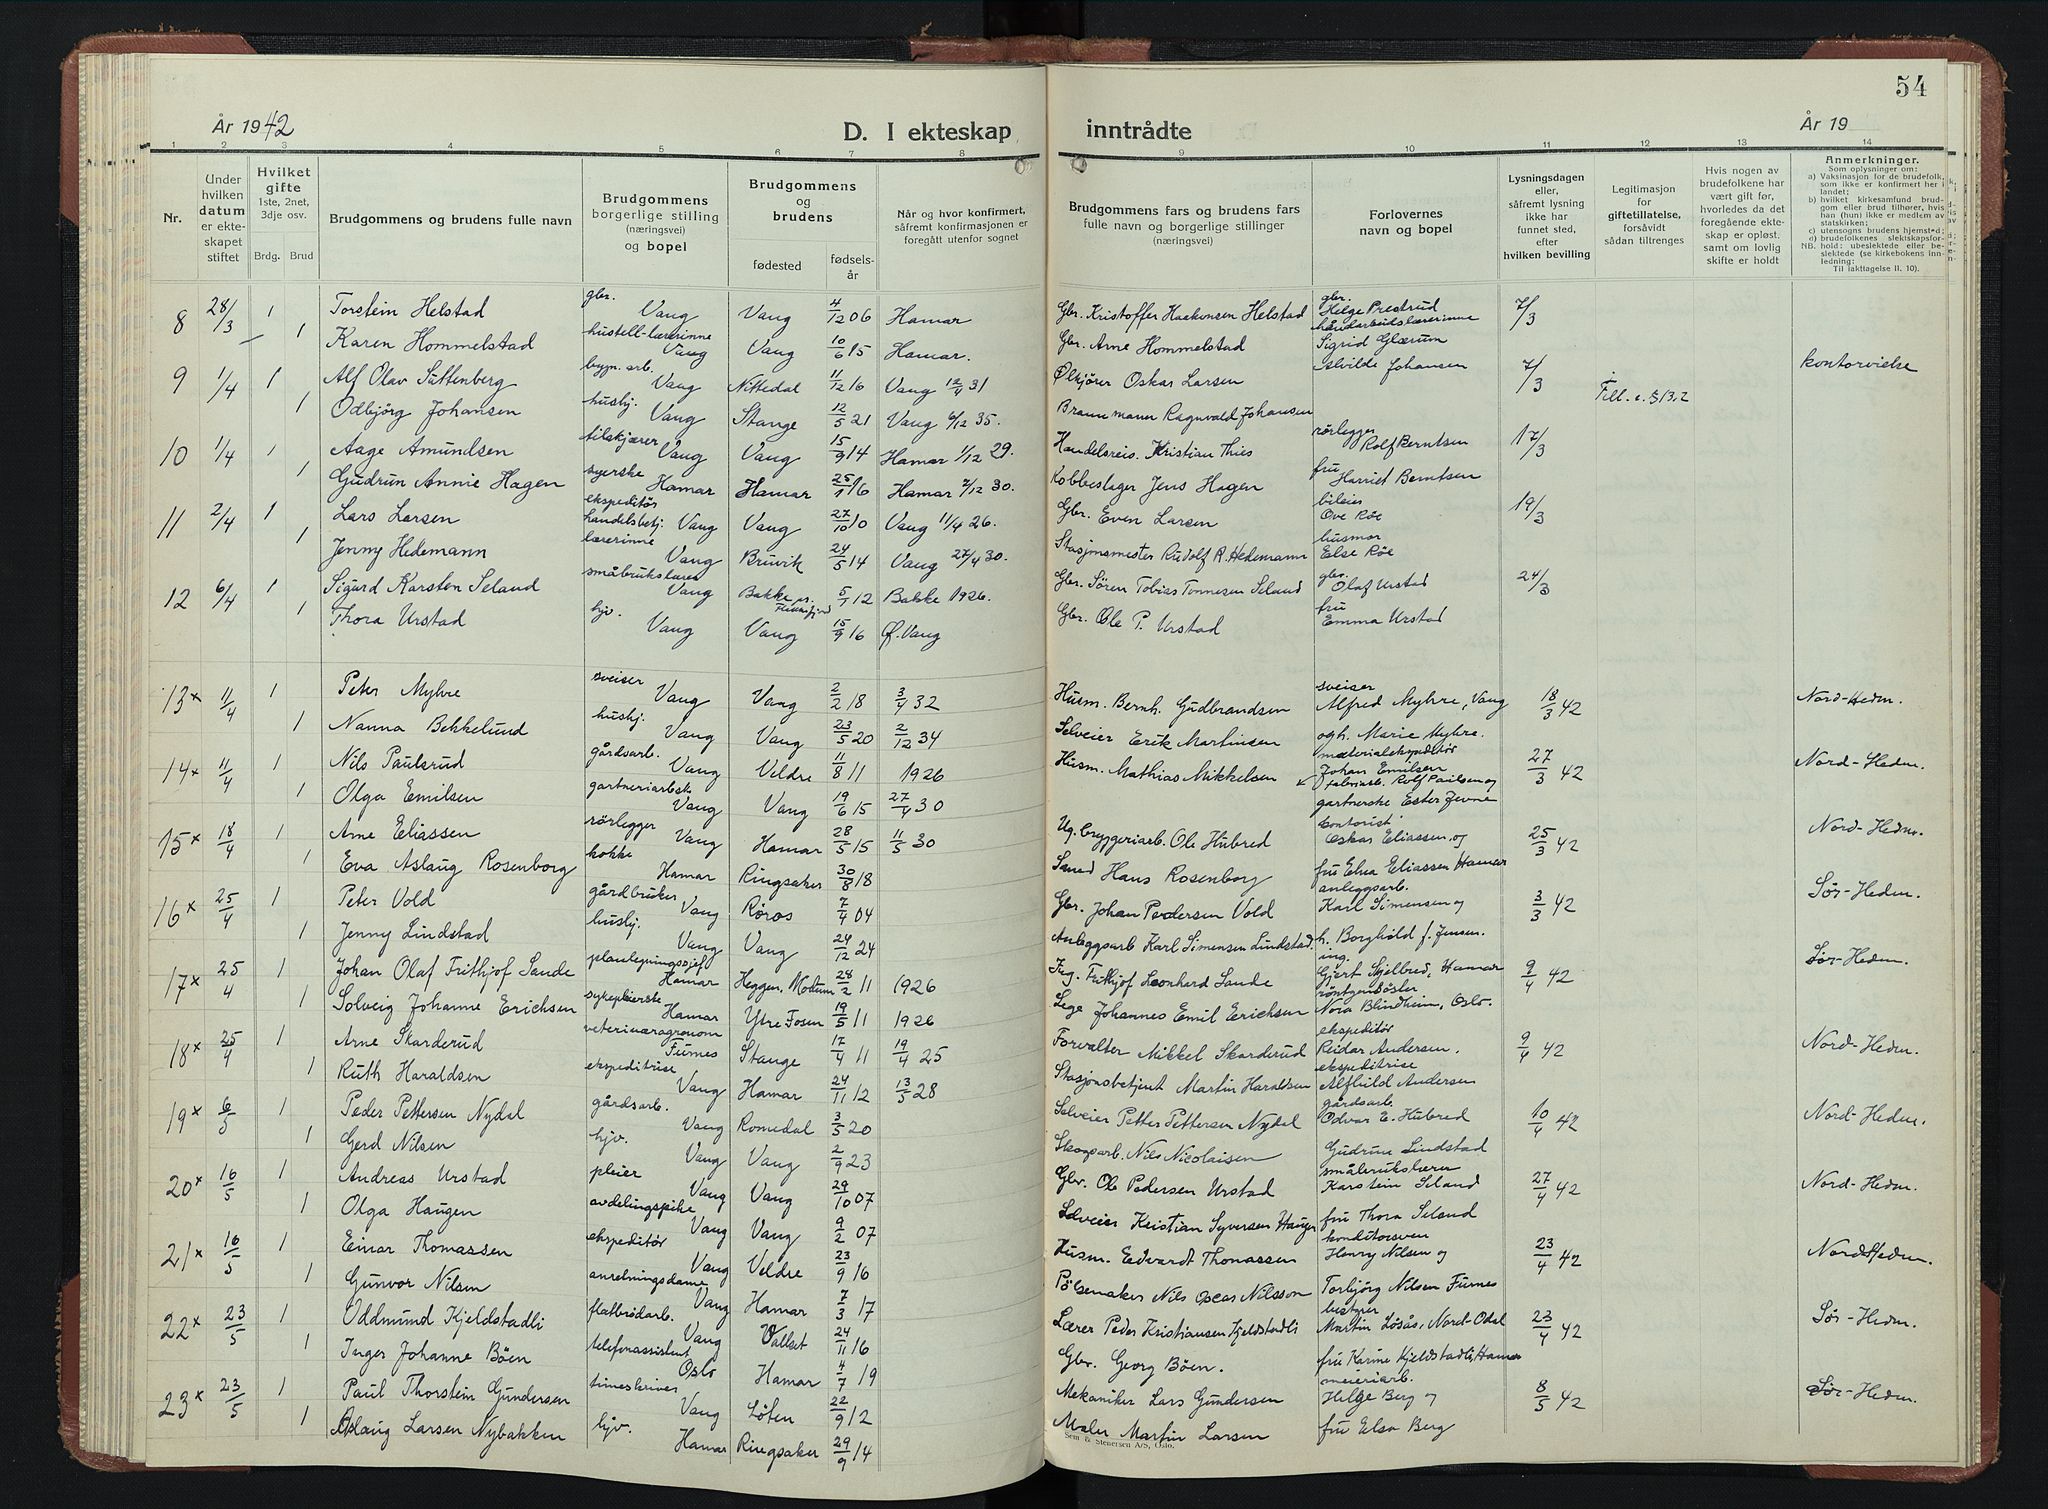 54
År 1942
D. I ekteskap inntrådte
År 19
1 2 3 4 5 6 7 8 9 10 11 12 13 14
Nr.
Under hvilken datum er ekteskapet stiftet
Hvilket gifte 1ste, 2net, 3dje osv.
Brdg. Brud
Brudgommens og brudens fulle navn
Brudgommens borgerlige stilling (næringsvei) og bopel
Brudgommens og brudens
fødested fødselsår
Når og hvor konfirmert, såfremt konfirmasjonen er foregått utenfor sognet
Brudgommens fars og brudens fars fulle navn og borgerlige stillinger (næringsvei)
Forlovernes navn og bopel
Lysningsdagen eller, såfremt lysning ikke har funnet sted, efter hvilken bevilling
Legitimasjon for giftetillatelse, forsåvidt sådan tiltrenges
Hvis nogen av brudefolkene har vært gift før, hvorledes da det foregående ekteskap er opløst, samt om lovlig skifte er holdt
Anmerkninger.
Som oplysninger om:
a) Vaksinasjon for de brudefolk, som ikke er konfirmert her i landet;
b) hvilket kirkesamfund brudgom eller brud tilhører, hvis han (hun) ikke er medlem av statskirken;
c) utensogns brudens hjemsted;
d) brudefolkenes slektskapsforhold: ubeslektede eller beslektede (se kirkebokens innledning;
Til iakttagelse II. 10).
8 28/3 1 Torstein Helstad gbr. Vang Vang 4/12 06 Hamar Gbr. Kristoffer Haakonsen Helstad gbr. Helge Prestrud 7/3
1 Karen Hommelstad hustell-lærerinne Vang Vang 10/6 15 Hamar. Gbr. Arne Hommelstad håndarbeidslærerinne Sigrid Glærum
9 1/4 1 Alf Olav Sættenberg bygn. arb. Vang Nittedal 11/12 16 Vang 12/4 31 Ølkjører Oskar Larsen Johansen 7/3 kontorvielse
1 Odbjörg Johansen husbj. Vang Stange 12/5 21 Vang 6/12 35. Ragnvald Johansen
10 1/4 1 Aage Amundsen Vang Vang 15/9 14 Hamar 1/12 29. Handelsreis. Kristian Thies rørlegger Rolf Berntsen 17/3
1 Gudrun Annie Hagen syerske Hamar Hamar 25/1 16 Hamar 7/12 30. Kobbeslager Jens Hagen fru Harriet Berntsen
11 2/4 1 Lars Larsen ekspeditör handelsbetj. Vang Vang 27/10 10 Vang 11/4 26. Gbr. Even Larsen bileier Ove Röe 19/3
1 Jenny Hedemann lærerinne Vang Bruvik 24/5 14 Vang 27/4 30. Stasjonsmester Rudolf R. Hedemann husmor Else Röe
12 6/4 1 Sigurd Karsten Seland småbrukslærer Vang Bakke 5/1 12 Bakke 1926. Gbr. Sören Tobias Tonnesen Seland gbr. Olaf Urstad 24/3
1 Thora Urstad hjv. Vang Vang 15/9 16 Ø. Vang Gbr. Ole P. Urstad fru Emma Urstad
13 x 11/4 1 Peter Myhre sveiser Vang Vang 2/2 18 3/4 32 Husm. Bernh. Gudbrandsen sveiser Alfred Myhre, Vang 18/3 42 Nord-Hedm.
1 Nanna Bekkelund husbj. Vang Vang 23/5 20 2/12 34 Selveier Erik Martinsen og h. Marie Myhre.
14 x 11/4 1 Nils Paulsrud gårdsarb. Vang Veldre 11/8 11 1926 Husm. Mathias Mikkelsen Johan Emilsen fabrikarb. Rolf Paulsen og 27/3 42 Nord-Hedm.
1 Olga Emilsen Vang Vang 19/6 15 27/4 30 gartnerske Ester Jevne
15 x 18/4 1 Arne Eliassen rörlegger Vang Hamar 28/5 15 11/5 30 Ug. bryggeriarb. Ole Hubred kontorist Oskar Eliassen og 25/3 42 Nord-Hedm.
1 Eva Aslaug Rosenborg kokke Hamar Ringsaker 30/8 18 Smed Hans Rosenborg fru Elna Eliassen Hamar
16 x 25/4 1 Peter Vold gårdbruker Vang Röros 7/4 04 Gbr. Johan Pedersen Vold anleggsarb. Karl Simensen og 3/3 42 Sør-Hedm.
1 Jenny Lindstad husbj. Vang Vang 24/12 24 Anleggsarb Karl Simensen Lindstad. h. Borghild f. Jensen.
17 x 25/4 1 Johan Olaf Frithjof Sande planlegningssjef Hamar Heggen, Modum 28/2 11 1926 Ing. Frithjof Leonhard Sande ing. Gjert Skjelbred, Hamar 9/4 42 Sør-Hedm.
1 Solveig Johanne Erichsen sykepleierske Hamar Ytre Fosen 19/5 11 1926 Lege Johannes Emil Erichsen röntgensöster Nora Blindheim, Oslo.
18 x 25/4 1 Arne Skarderud veterinæragronom Furnes Stange 17/4 11 19/4 25 Forvalter Mikkel Skarderud ekspeditör Reidar Andersen. 9/4 42 Nord-Hedm.
1 Ruth Haraldsen ekspeditrise Vang Hamar 24/11 12 13/5 28 Stasjonsbetjent Martin Haraldsen ekspeditrise Alfhild Andersen
19 x 6/5 1 Peder Pettersen Nydal gårdsarb. Vang Romedal 3/5 20 Selveier Petter Pettersen Nydal gårdsarb. Odvar E. Hubred 10/4 42 Nord-Hedm.
1 Gerd Nilsen hjv. Vang Vang 2/9 23 Skogsarb. Nils Nicolaisen Gudrun Lindstad
20 x 16/5 1 Andreas Urstad pleier Vang Vang 29/10 07 Gbr. Ole Pedersen Urstad småbrukslærer Karstein Seland 27/4 42 Nord-Hedm.
1 Olga Haugen avdelingspike Vang Vang 9/2 07 Selveier Kristian Syversen Haugen fru Thora Seland
21 x 16/5 1 Einar Thomassen ekspeditör Vang Veldre 23/9 16 Husm. Edvardt Thomassen konditorsven Henry Nilsen og 23/4 42 Nord-Hedm.
1 Gunvor Nilsen anretningsdame Vang Hamar 7/3 17 Pölsemaker Nils Oscar Nilsson Torbjörg Nilsen Furnes
22 x 23/5 1 Oddmund Kjeldstadli flatbrödarb. Vang Vallset 24/11 16 Lærer Peder Kristiansen Kjeldstadli bestyrer Martin Løsås, Nord-Odal 23/4 42 Sør-Hedm.
1 Inger Johanne Böen telefonassistent Oslo Hamar 4/7 19 Gbr. Georg Böen. fru Karine Kjeldstadli, Hamar
23 x 23/5 1 Paul Thorstein Gundersen timeskriver Vang Löten 22/9 12 Mekaniker Lars Gundersen meieriarb. Helge Berg og 8/5 42 Sør-Hedm.
1 Aslaug Larsen Nybakken hjv. Hamar Ringsaker 29/9 14 Maler Martin Larsen fru Elsa Berg
Sem & Stenersen A/S, Oslo.